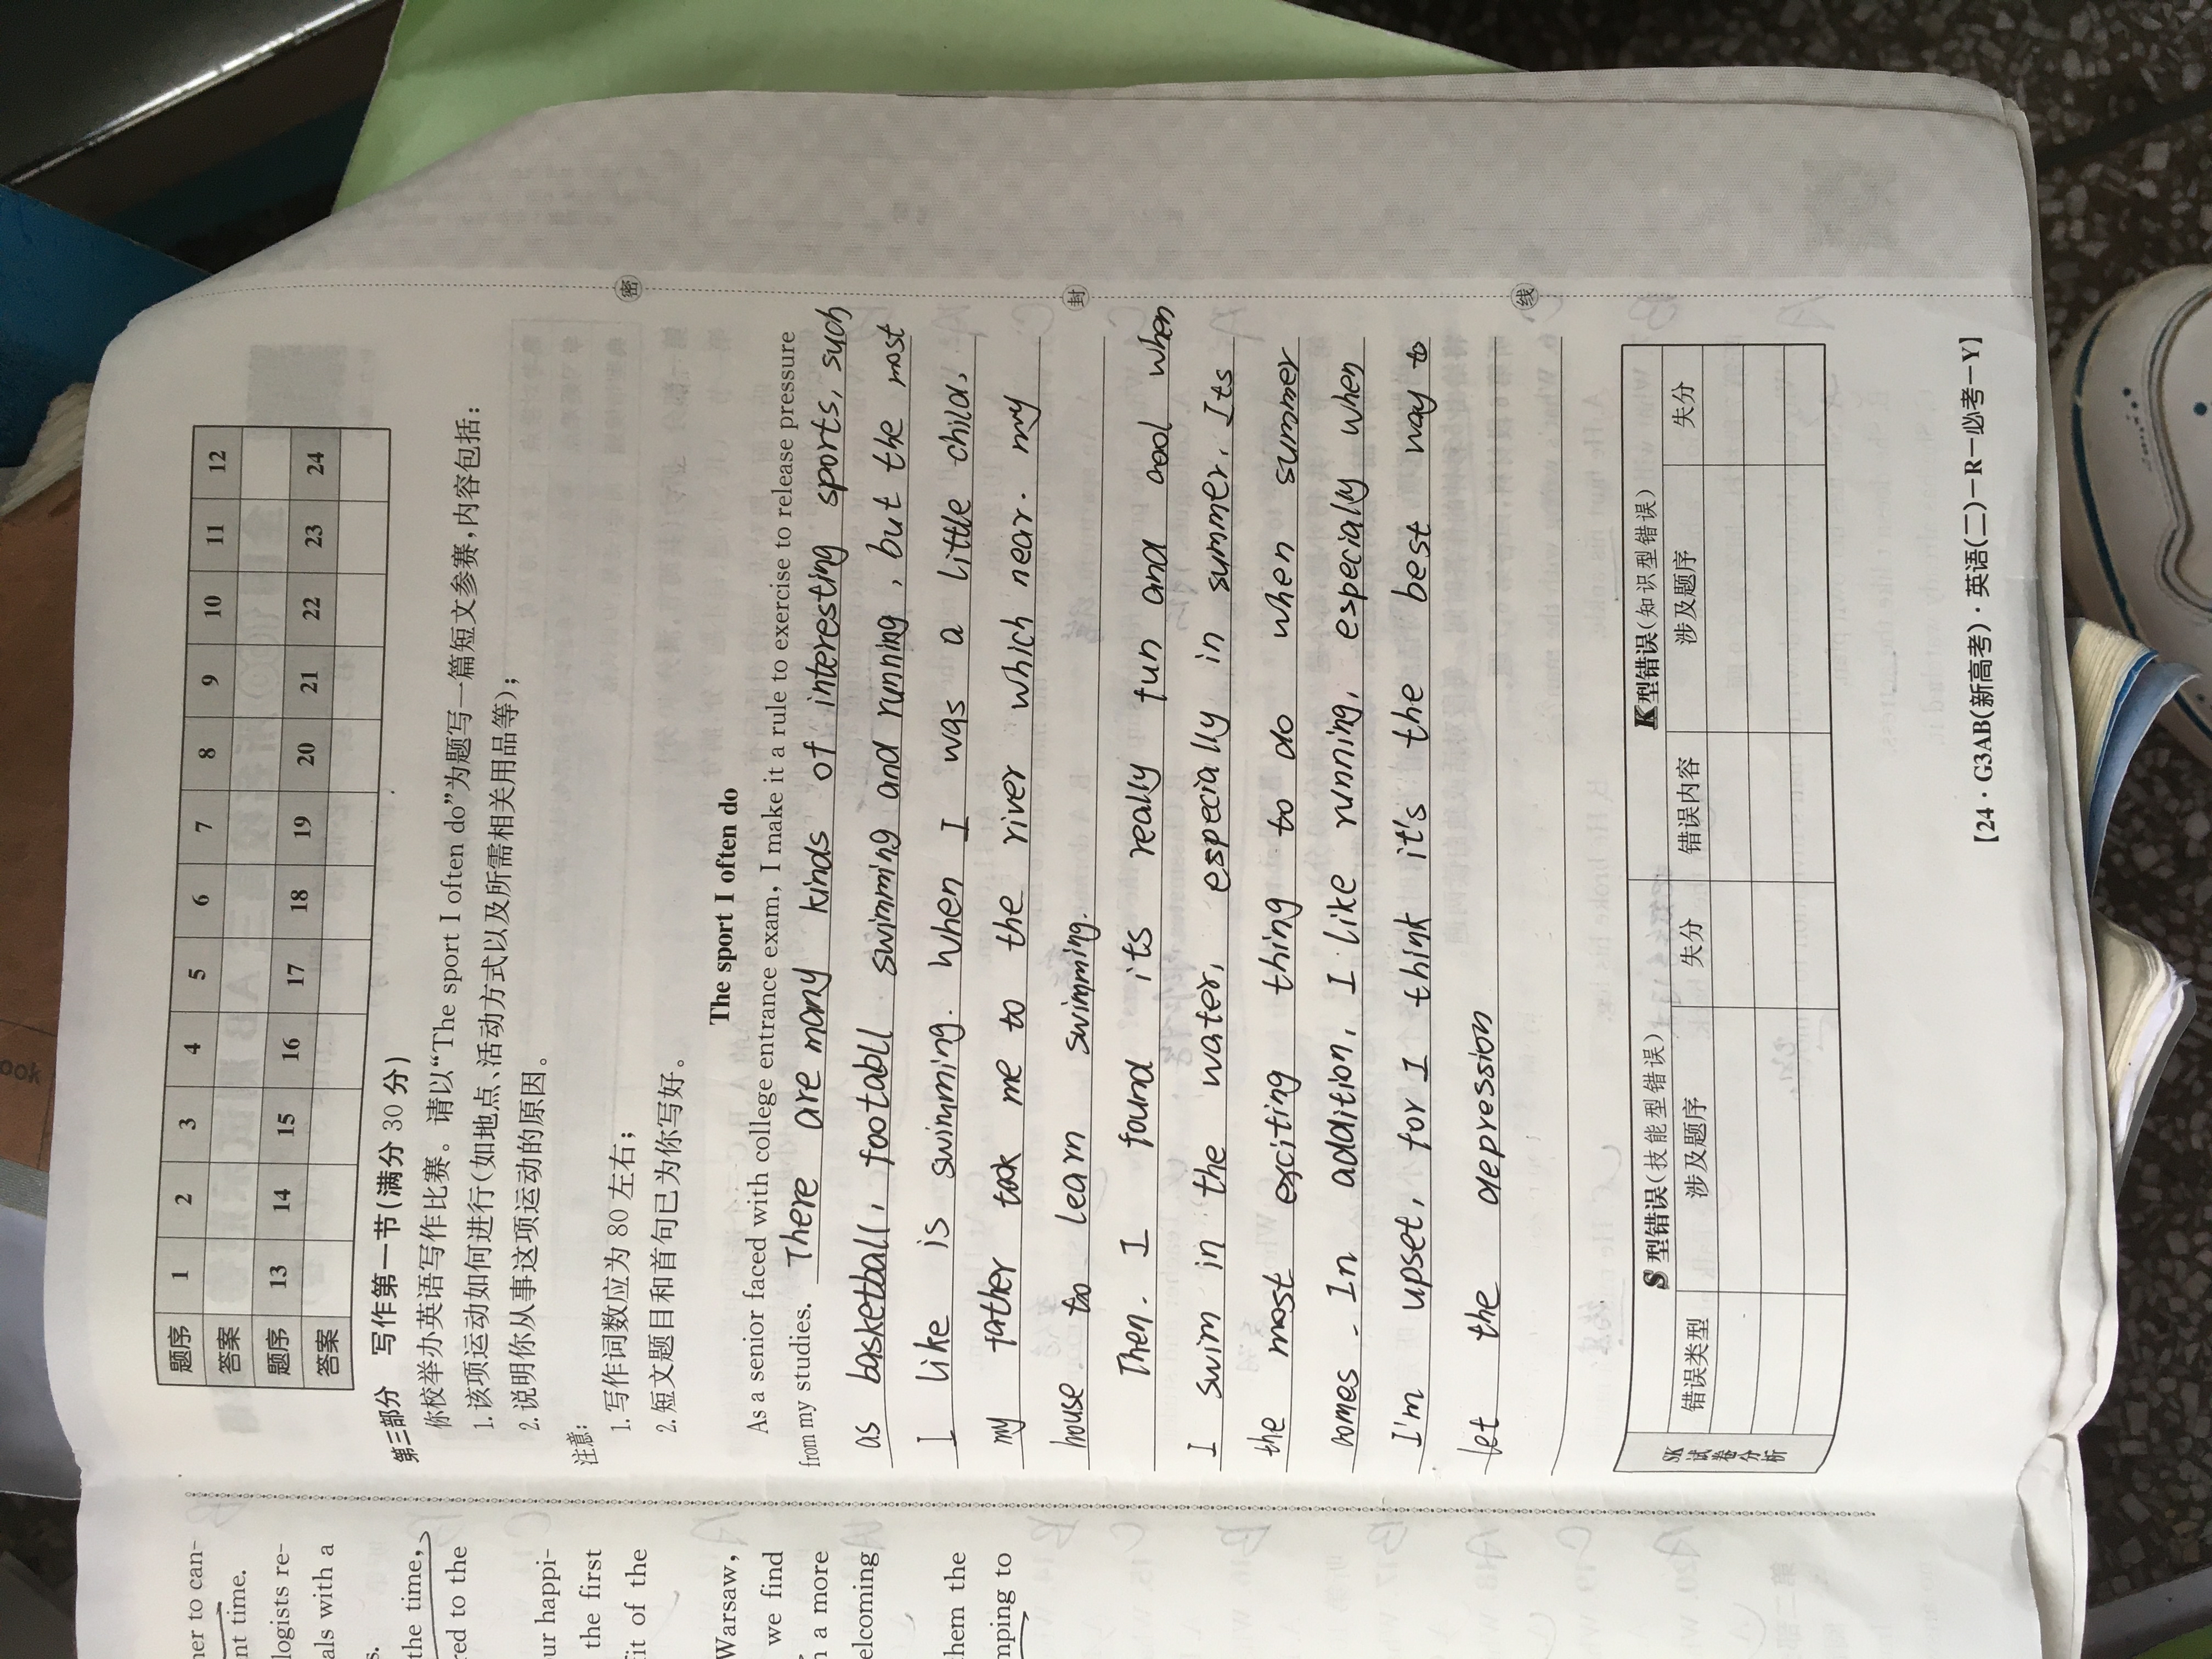 题序 1 2 3 4 5 6 7 8 9 10 11 12
答案
题序 13 14 15 16 17 18 19 20 21 22 23 24
答案
第三部分 写作第一节(满分 30 分)
你校举办英语写作比赛。请以“The sport I often do”为题写一篇短文参赛,内容包括:
1. 该项运动如何进行(如地点、活动方式以及所需相关用品等);
2. 说明你从事这项运动的原因。
注意:
1. 写作词数应为 80 左右;
2. 短文题目和首句已为你写好。
The sport I often do
As a senior faced with college entrance exam, I make it a rule to exercise to release pressure
from my studies. There are many kinds of interesting sports, such
as basketball, footabll swimming and running, but the most
I like is swimming. When I was a little child,
my father took me to the river which near. my
house to learn swimming.
Then. I found its really fun and cool when
I swim in the water, especially in summer. Its
the most exciting thing to do when summer
comes. In addition, I like running, especially when
I'm upset, for I think it's the best way to
let the depression
密
封
线
SK试卷分析
S型错误(技能型错误) K型错误(知识型错误)
错误类型 涉及题序 失分 错误内容 涉及题序 失分
【24·G3AB(新高考)·英语(二)-R-必考-Y】
her to can-
nt time.
logists re-
als with a
s.
the time,
red to the
our happi-
the first
fit of the
Warsaw,
we find
n a more
elcoming
them the
mping to